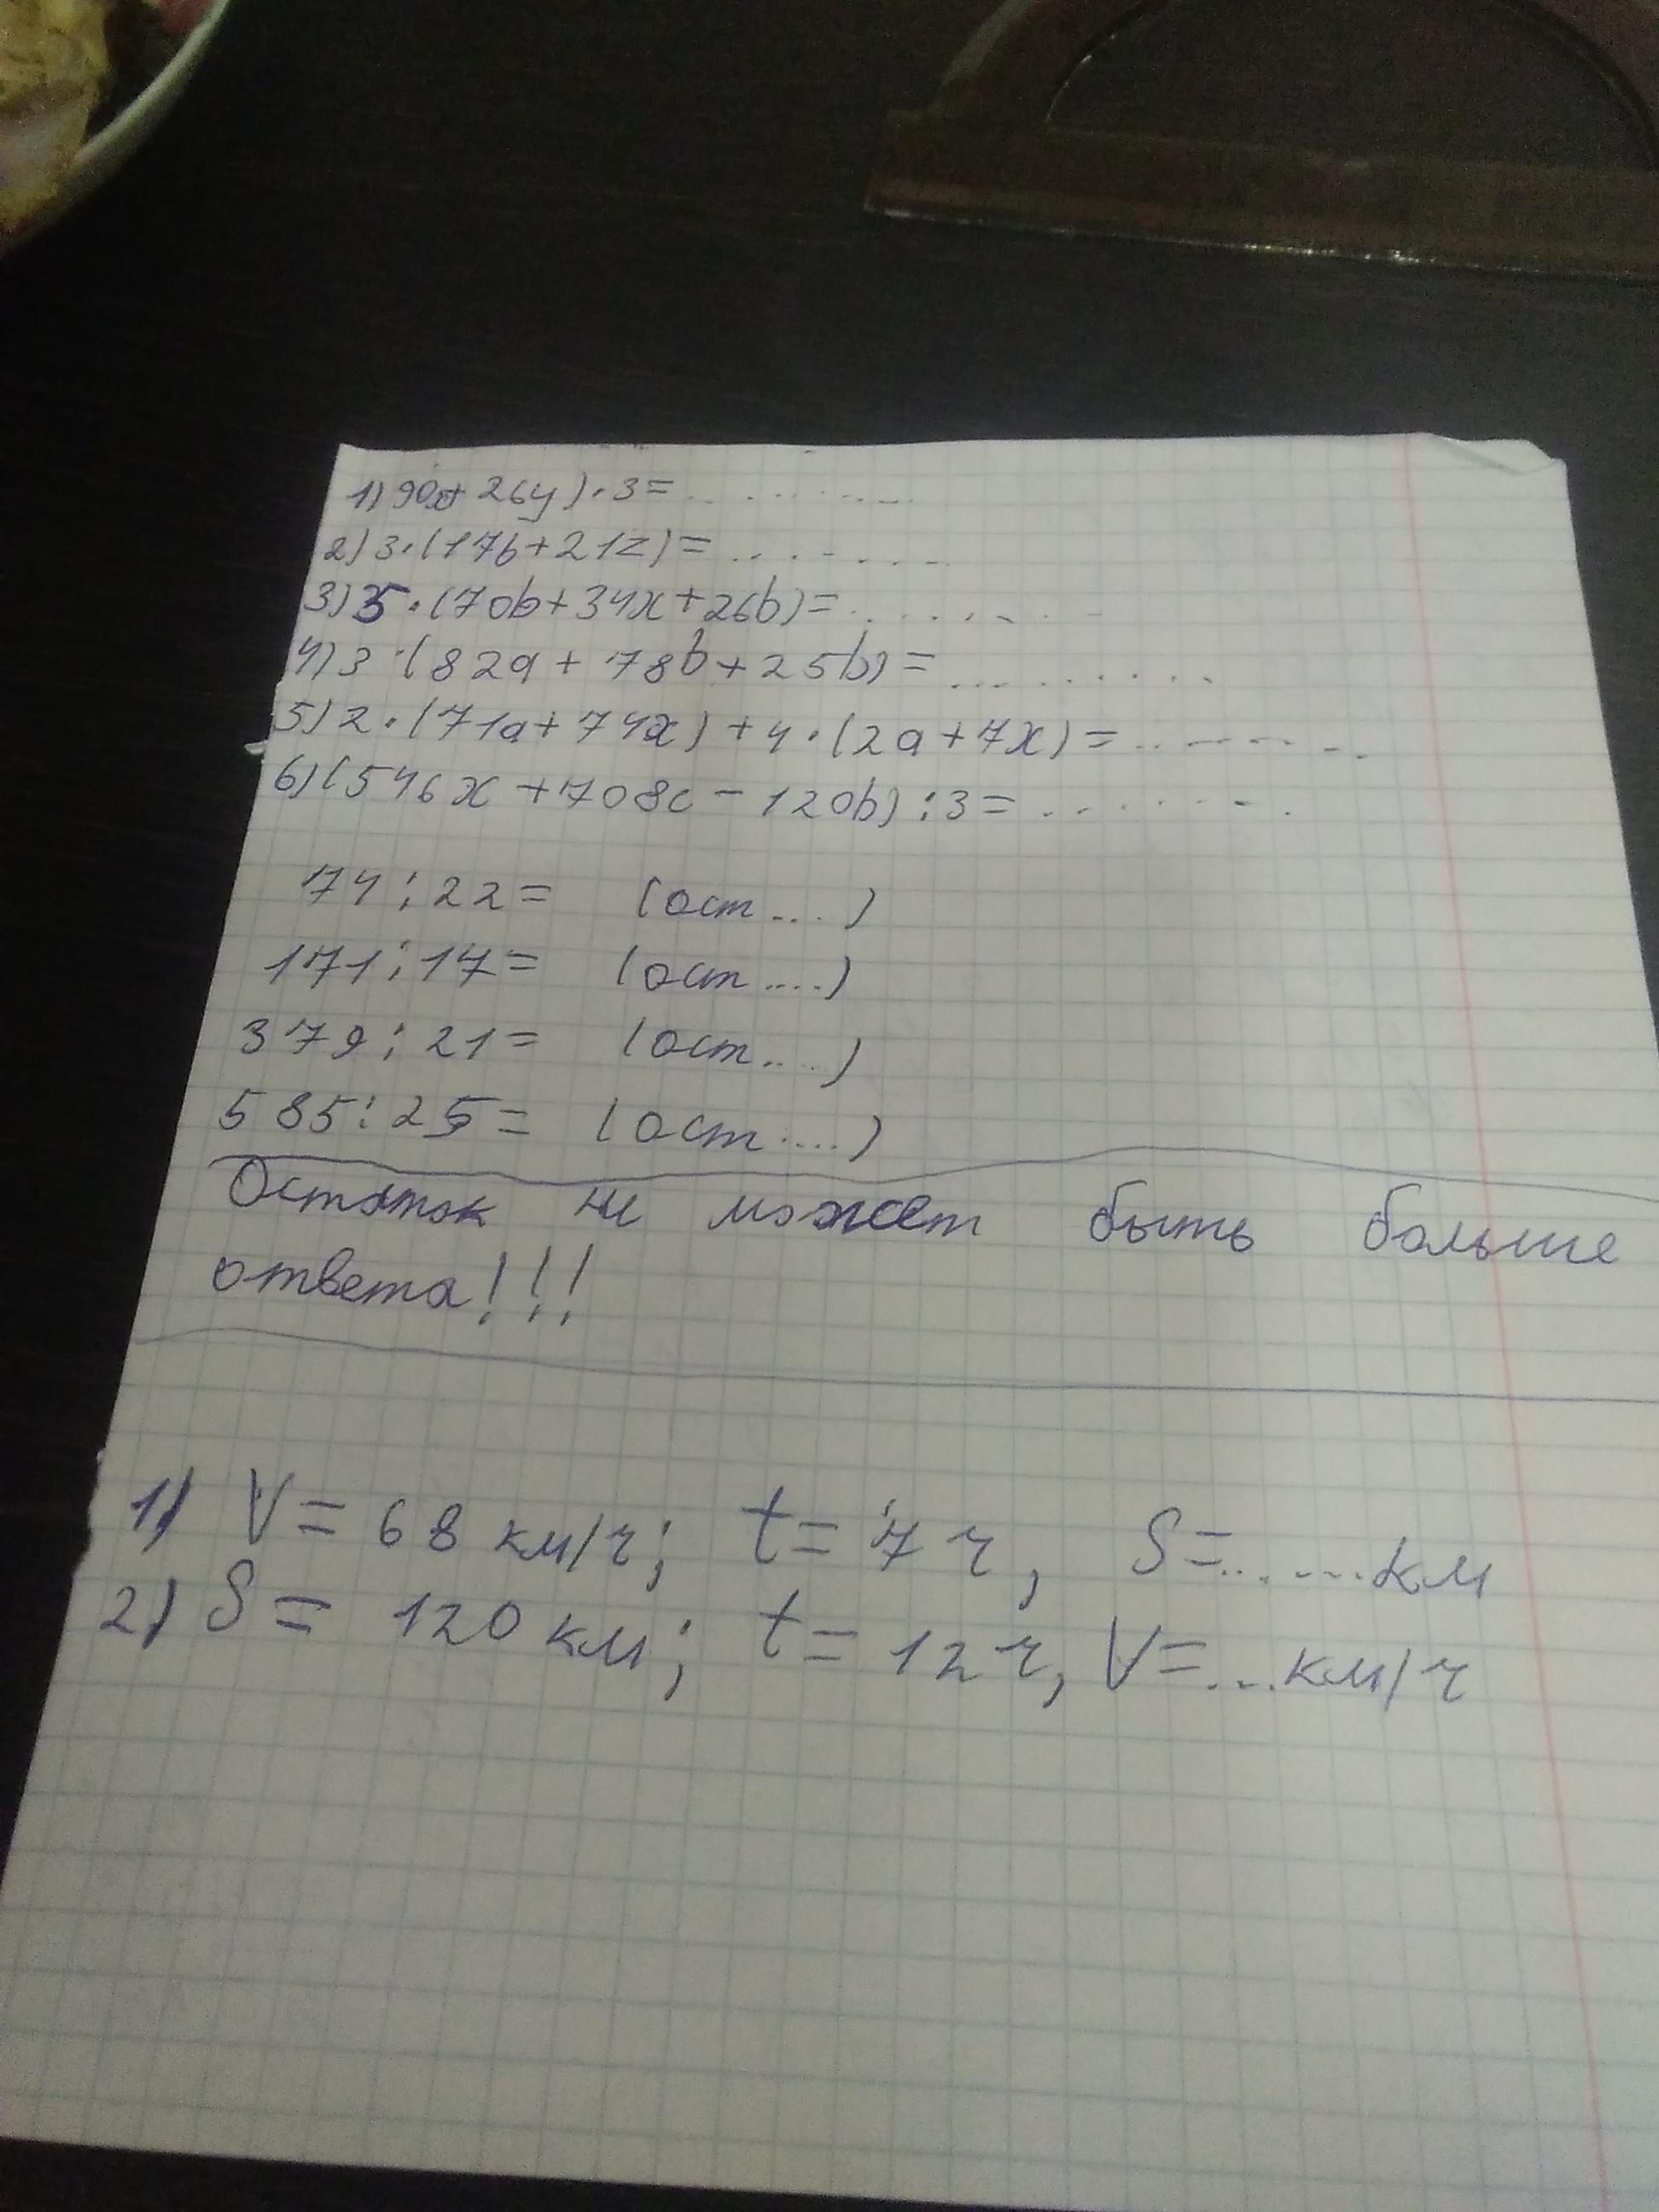 1) 90x+26y)·3=............
2) 3·(17b+21z)=............
3) 5·(70b+34x+26b)=............
4) 3·(82a+78b+25b)=............
5) 2·(71a+74x)+4·(2a+7x)=............
6) (546x+708c-120b):3=............
74:22= (ост....)
171:17= (ост....)
379:21= (ост....)
585:25= (ост....)
Остаток не может быть больше
ответа!!!
1) V=68 км/ч; t=7 ч, S=......км
2) S=120 км; t=12 ч, V=...км/ч